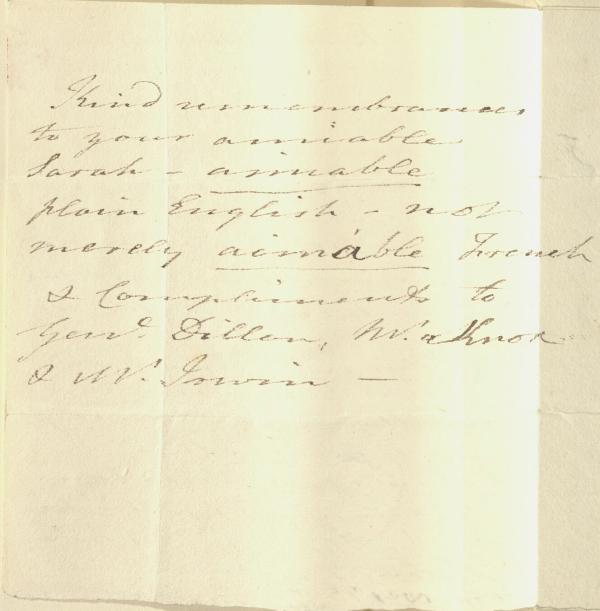 Kind remembrances
to your amiable
Sarah - amiable
plain English - not
merely aimable French
& Compliments to
Genl. Dillon, Mr. Knox
& Mr. Irwin -